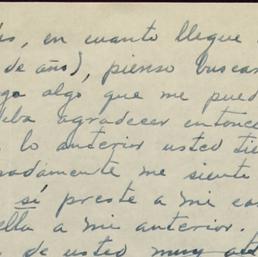 en cuanto llegue
de año), pienso buscar
algo que me pued
agradecer entonces
lo anterior usted tie
adamente me siente
sí preste a mi ca
ella a mi anterior.
de usted muy at